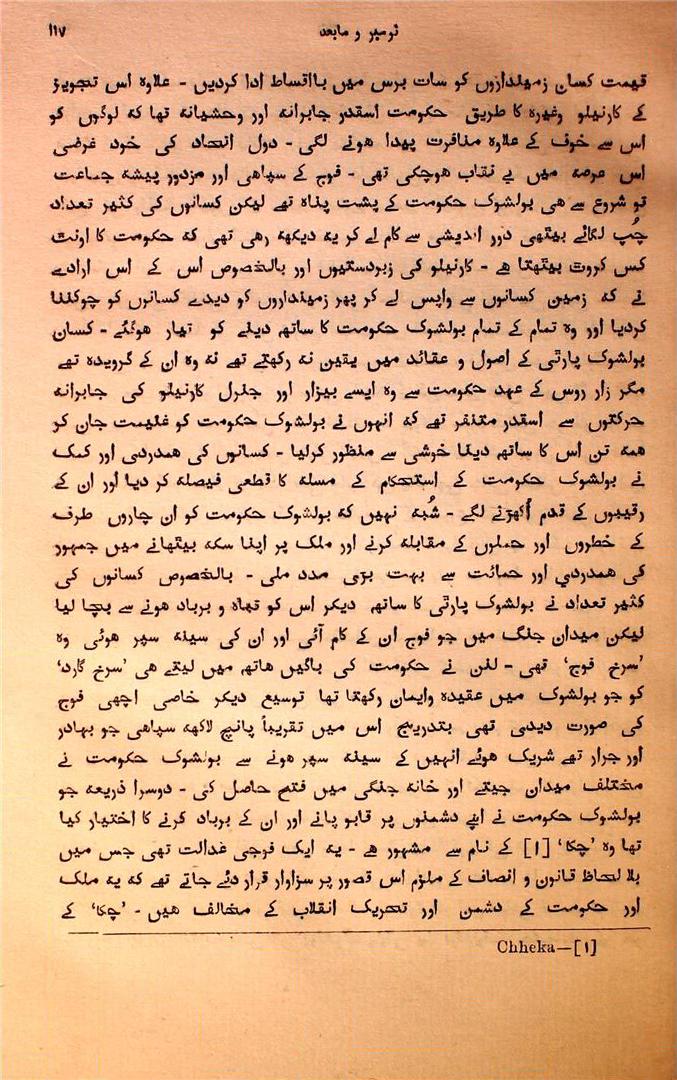 نومبر و مابعد ۱۱۷
قیمت کسان زمینداروں کو سات برس میں بااقساط ادا کردیں - علاوہ اس تجویز
کے کارنیلو وغیرہ کا طریق حکومت اسقدر جابرانہ اور وحشیانہ تھا کہ لوگوں کو
اس سے خوف کے علاوہ منافرت پیدا ہونے لگی - دول اتحاد کی خود غرضی
اس عرصہ میں بے نقاب ہوچکی تھی - فوج کے سپاہی اور مزدور پیشہ جماعت
تو شروع سے ہی بولشوک حکومت کے پشت پناہ تھے لیکن کسانوں کی کثیر تعداد
چُپ لگائے بیٹھی دور اندیشی سے کام لے کر یہ دیکھہ رہی تھی کہ حکومت کا اونٹ
کس کروٹ بیٹھتا ہے - کارنیلو کی زبردستیوں اور بالخصوص اس کے اس ارادے
نے کہ زمین کسانوں سے واپس لے کر پھر زمینداروں کو دیدے کسانوں کو چوکننا
کردیا اور وہ تمام کے تمام بولشوک حکومت کا ساتھہ دینے کو تیار ہوگئے - کسان
بولشوک پارٹی کے اصول و عقائد میں یقین نہ رکھتے تھے نہ وہ ان کے گرویدہ تھے
مگر زار روس کے عہد حکومت سے وہ ایسے بیزار اور جنرل کارنیلو کی جابرانہ
حرکتوں سے اسقدر متنفر تھے کہ انہوں نے بولشوک حکومت کو غنیمت جان کو
ہمہ تن اس کا ساتھہ دینا خوشی سے منظور کرلیا - کسانوں کی ہمدردی اور کمک
نے بولشوک حکومت کے استحکام کے مسلہ کا قطعی فیصلہ کر دیا اور ان کے
رقیبوں کے قدم اُکھڑنے لگے - شُبہ نہیں کہ بولشوک حکومت کو ان چاروں طرف
کے خطروں اور حملوں کے مقابلہ کرنے اور ملک پر اپنا سکہ بیٹھانے میں جمہور
کی ہمدردي اور حمائت سے بہت بڑی مدد ملی - بالخصوص کسانوں کی
کثیر تعداد نے بولشوک پارٹی کا ساتھہ دیکر اس کو تباہ و برباد ہونے سے بچا لیا
لیکن میدان جنگ میں جو فوج ان کے کام آئی اور ان کی سینہ سپر ہوئی وہ
’سرخ فوج‘ تھی - لنن نے حکومت کی باگیں ہاتھہ میں لیتے ہی ’سرخ گارد‘
کو جو بولشوک میں عقیدہ وایمان رکھتا تھا توسیع دیکر خاصی اچھی فوج
کی صورت دیدی تھی بتدریج اس میں تقریباً پانچ لاکھہ سپاہی جو بہادر
اور جرار تھے شریک ہوئے انہیں کے سینہ سپر ہونے سے بولشوک حکومت نے
مختلف میدان جیتے اور خانہ جنگی میں فتح حاصل کی - دوسرا ذریعہ جو
بولشوک حکومت نے اپنے دشمنوں پر قابو پانے اور ان کے برباد کرنے کا اختیار کیا
تھا وہ ’چکا‘ [۱] کے نام سے مشہور ہے - یہ ایک فوجی عدالت تھی جس میں
بلا لحاظ قانون و انصاف کے ملزم اس قصور پر سزاوار قرار دئے جاتے تھے کہ یہ ملک
اور حکومت کے دشمن اور تحریک انقلاب کے مخالف ہیں - ’چکا‘ کے
Chheka—[۱]